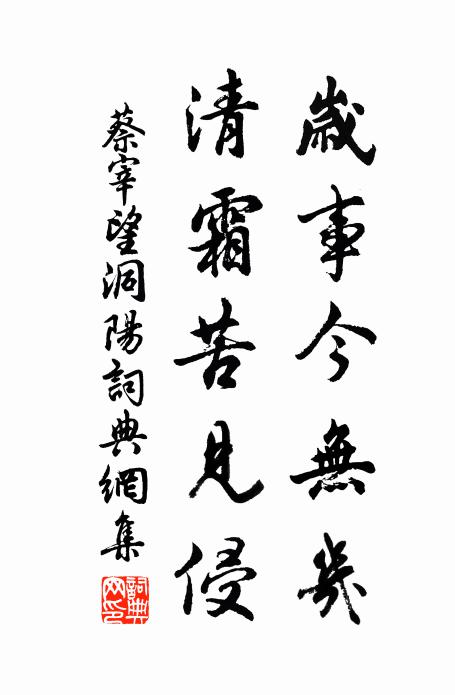 歲事今無幾
清霜苦見侵
蔡宰望洞陽詞典網集
詞典網印